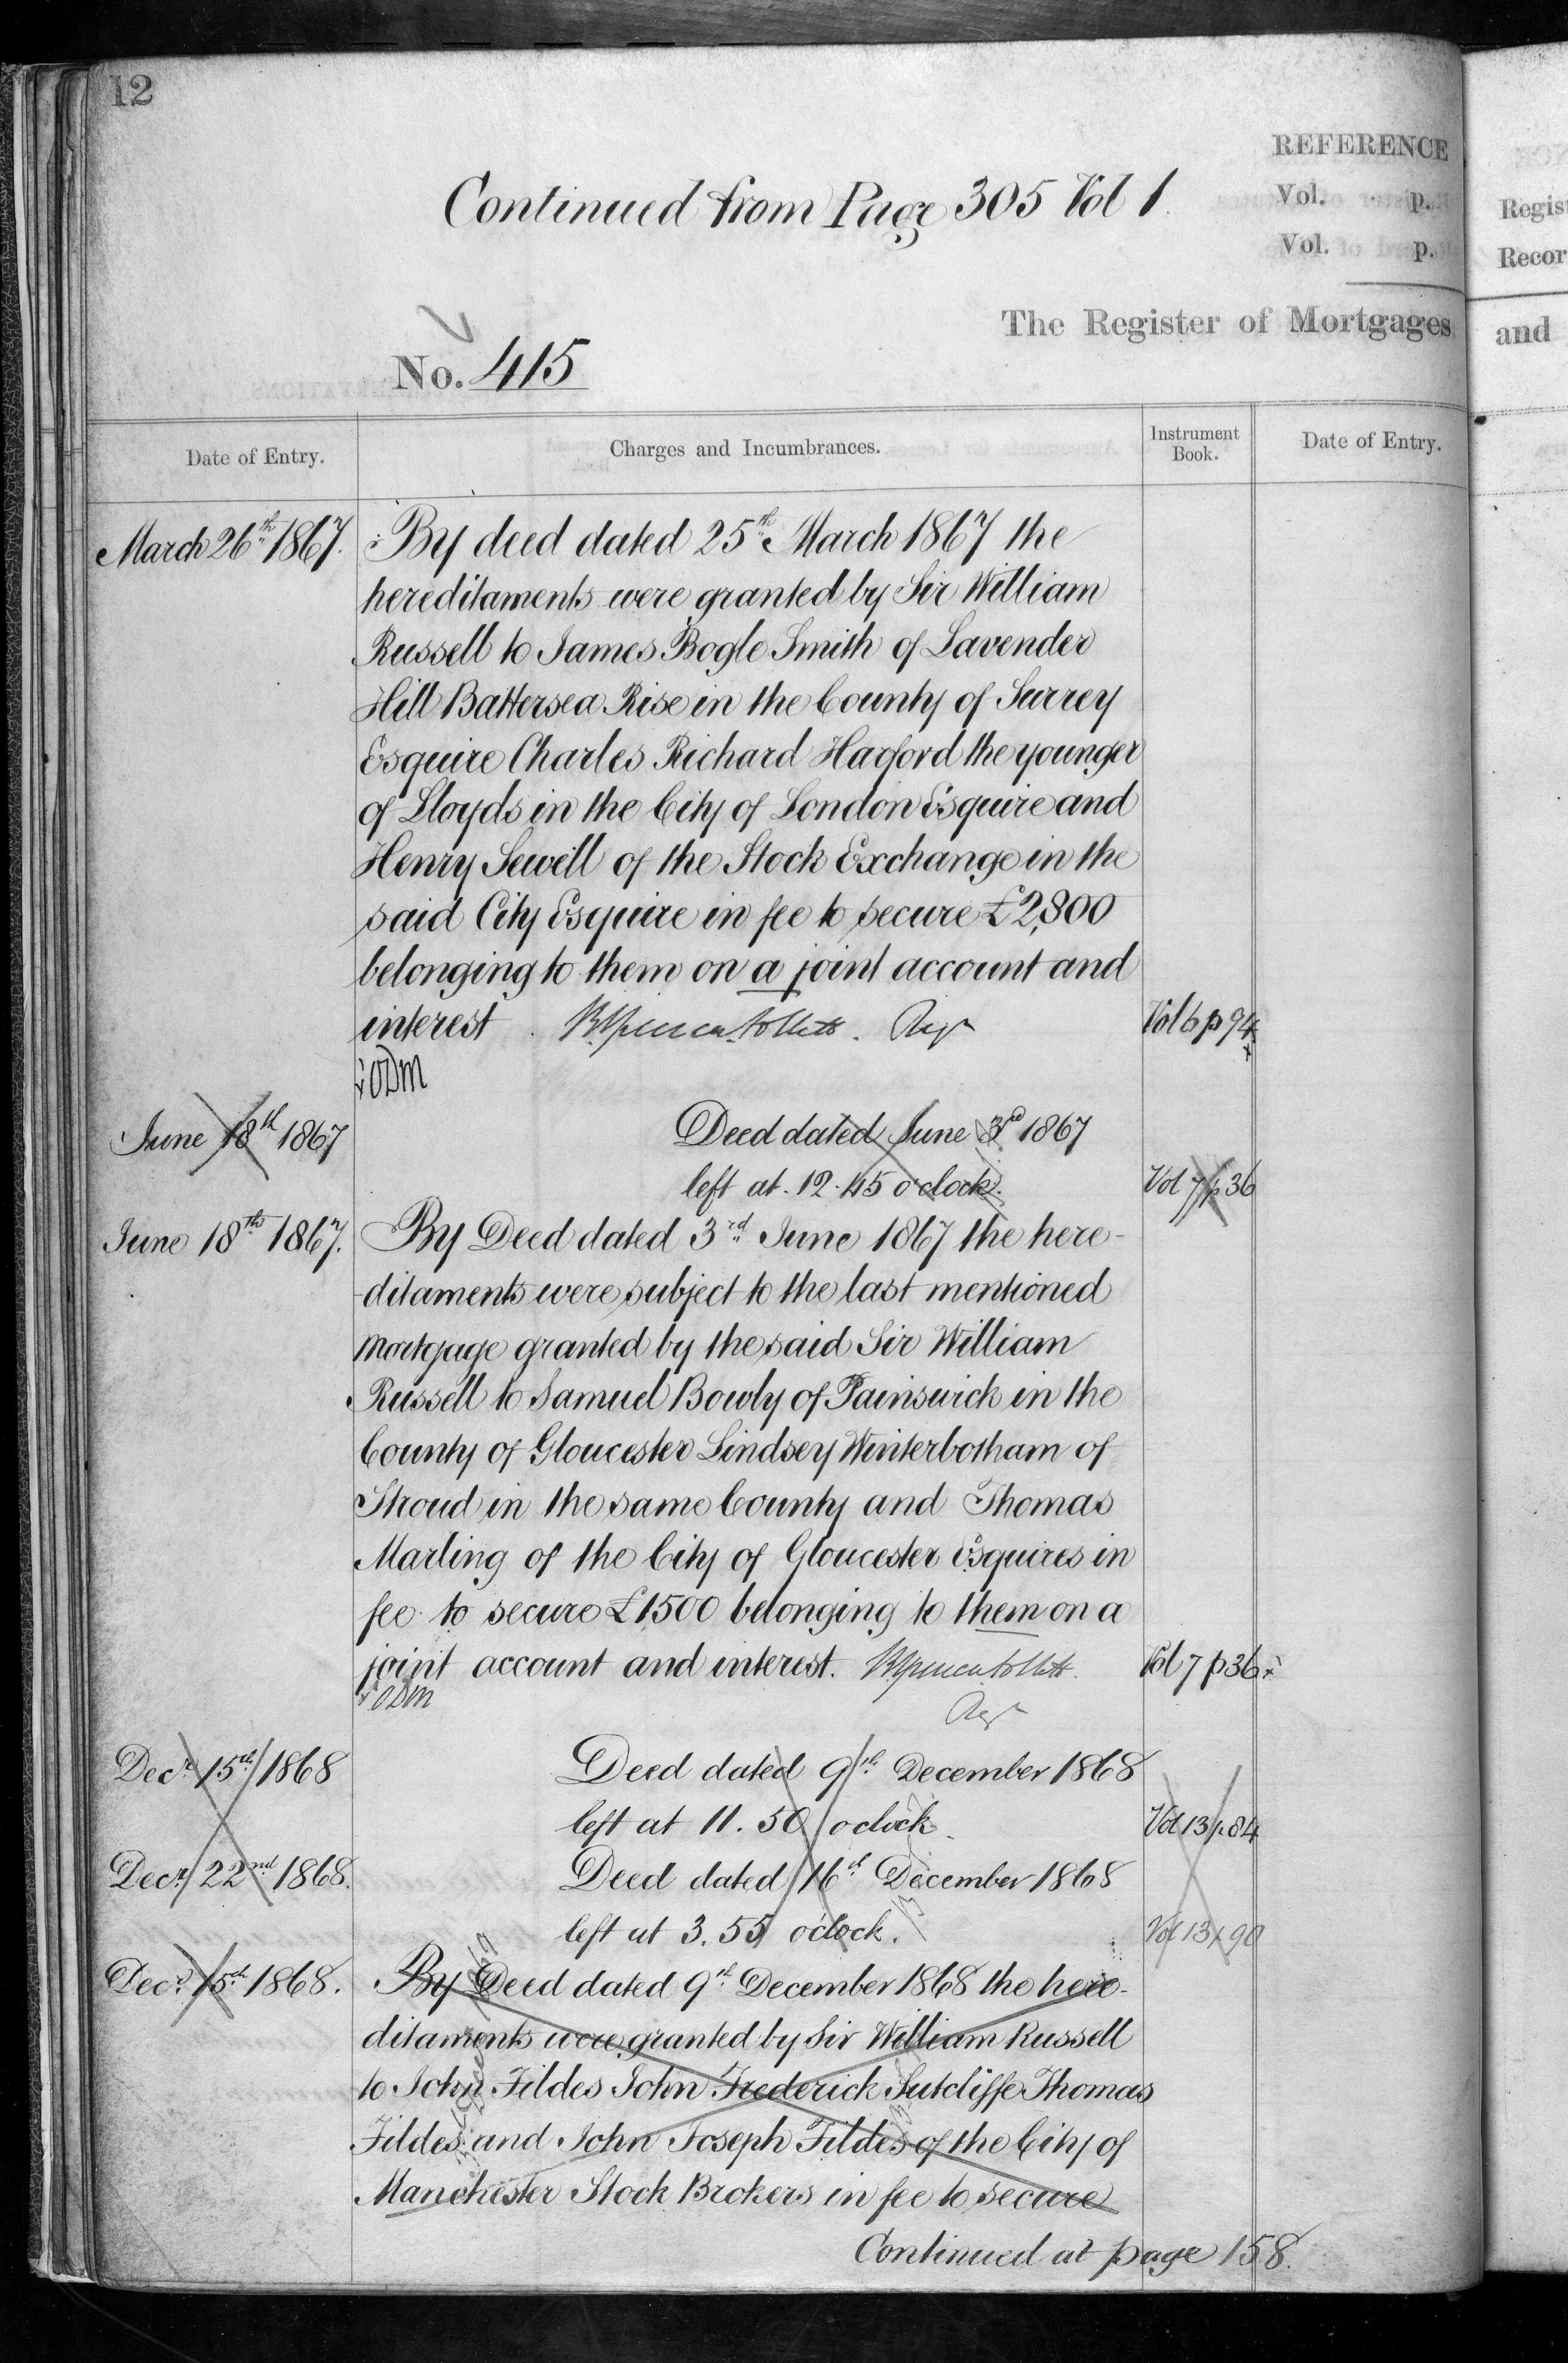 12
REFERENCE
Continued from Page 305 Vol 1.
Vol. p.
Vol. p.
Regist
Recor
The Register of Mortgages
and
No. 415
Date of Entry.
Charges and Incumbrances.
Instrument
Book.
Date of Entry.
March 26th 1867. By deed dated 25th March 1867 the
hereditaments were granted by Sir William
Russell to James Bogle Smith of Lavender
Hill Battersea Rise in the County of Surrey
Esquire Charles Richard Harford the younger
of Lloyds in the City of London Esquire and
Henry Sewell of the Stock Exchange in the
said City Esquire in fee to secure £2,800
belonging to them on a joint account and
interest. Regr Vol 6 p 94
ODM
June 18th 1867 Deed dated June 3rd 1867
left at 12.45 o'clock. Vol 7 p 36
June 18th 1867. By Deed dated 3rd June 1867 the here-
ditaments were subject to the last mentioned
mortgage granted by the said Sir William
Russell to Samuel Bowly of Painswick in the
County of Gloucester Lindsey Winterbotham of
Stroud in the same County and Thomas
Marling of the City of Gloucester Esquires in
fee to secure £1500 belonging to them on a
joint account and interest. Vol 7 p 36
ODM Regr
Decr. 15th 1868 Deed dated 9th December 1868
left at 11.50 o clock Vol 13 p 84
Decr. 22nd 1868. Deed dated 16th December 1868
left at 3.55 o'clock. Vol 13 p 90
Decr. 15th 1868. By Deed dated 9th December 1868 the here-
ditaments were granted by Sir William Russell
to John Fildes John Frederick Sutcliffe Thomas
Fildes and John Joseph Fildes of the City of
Manchester Stock Brokers in fee to secure
Continued at page 158.